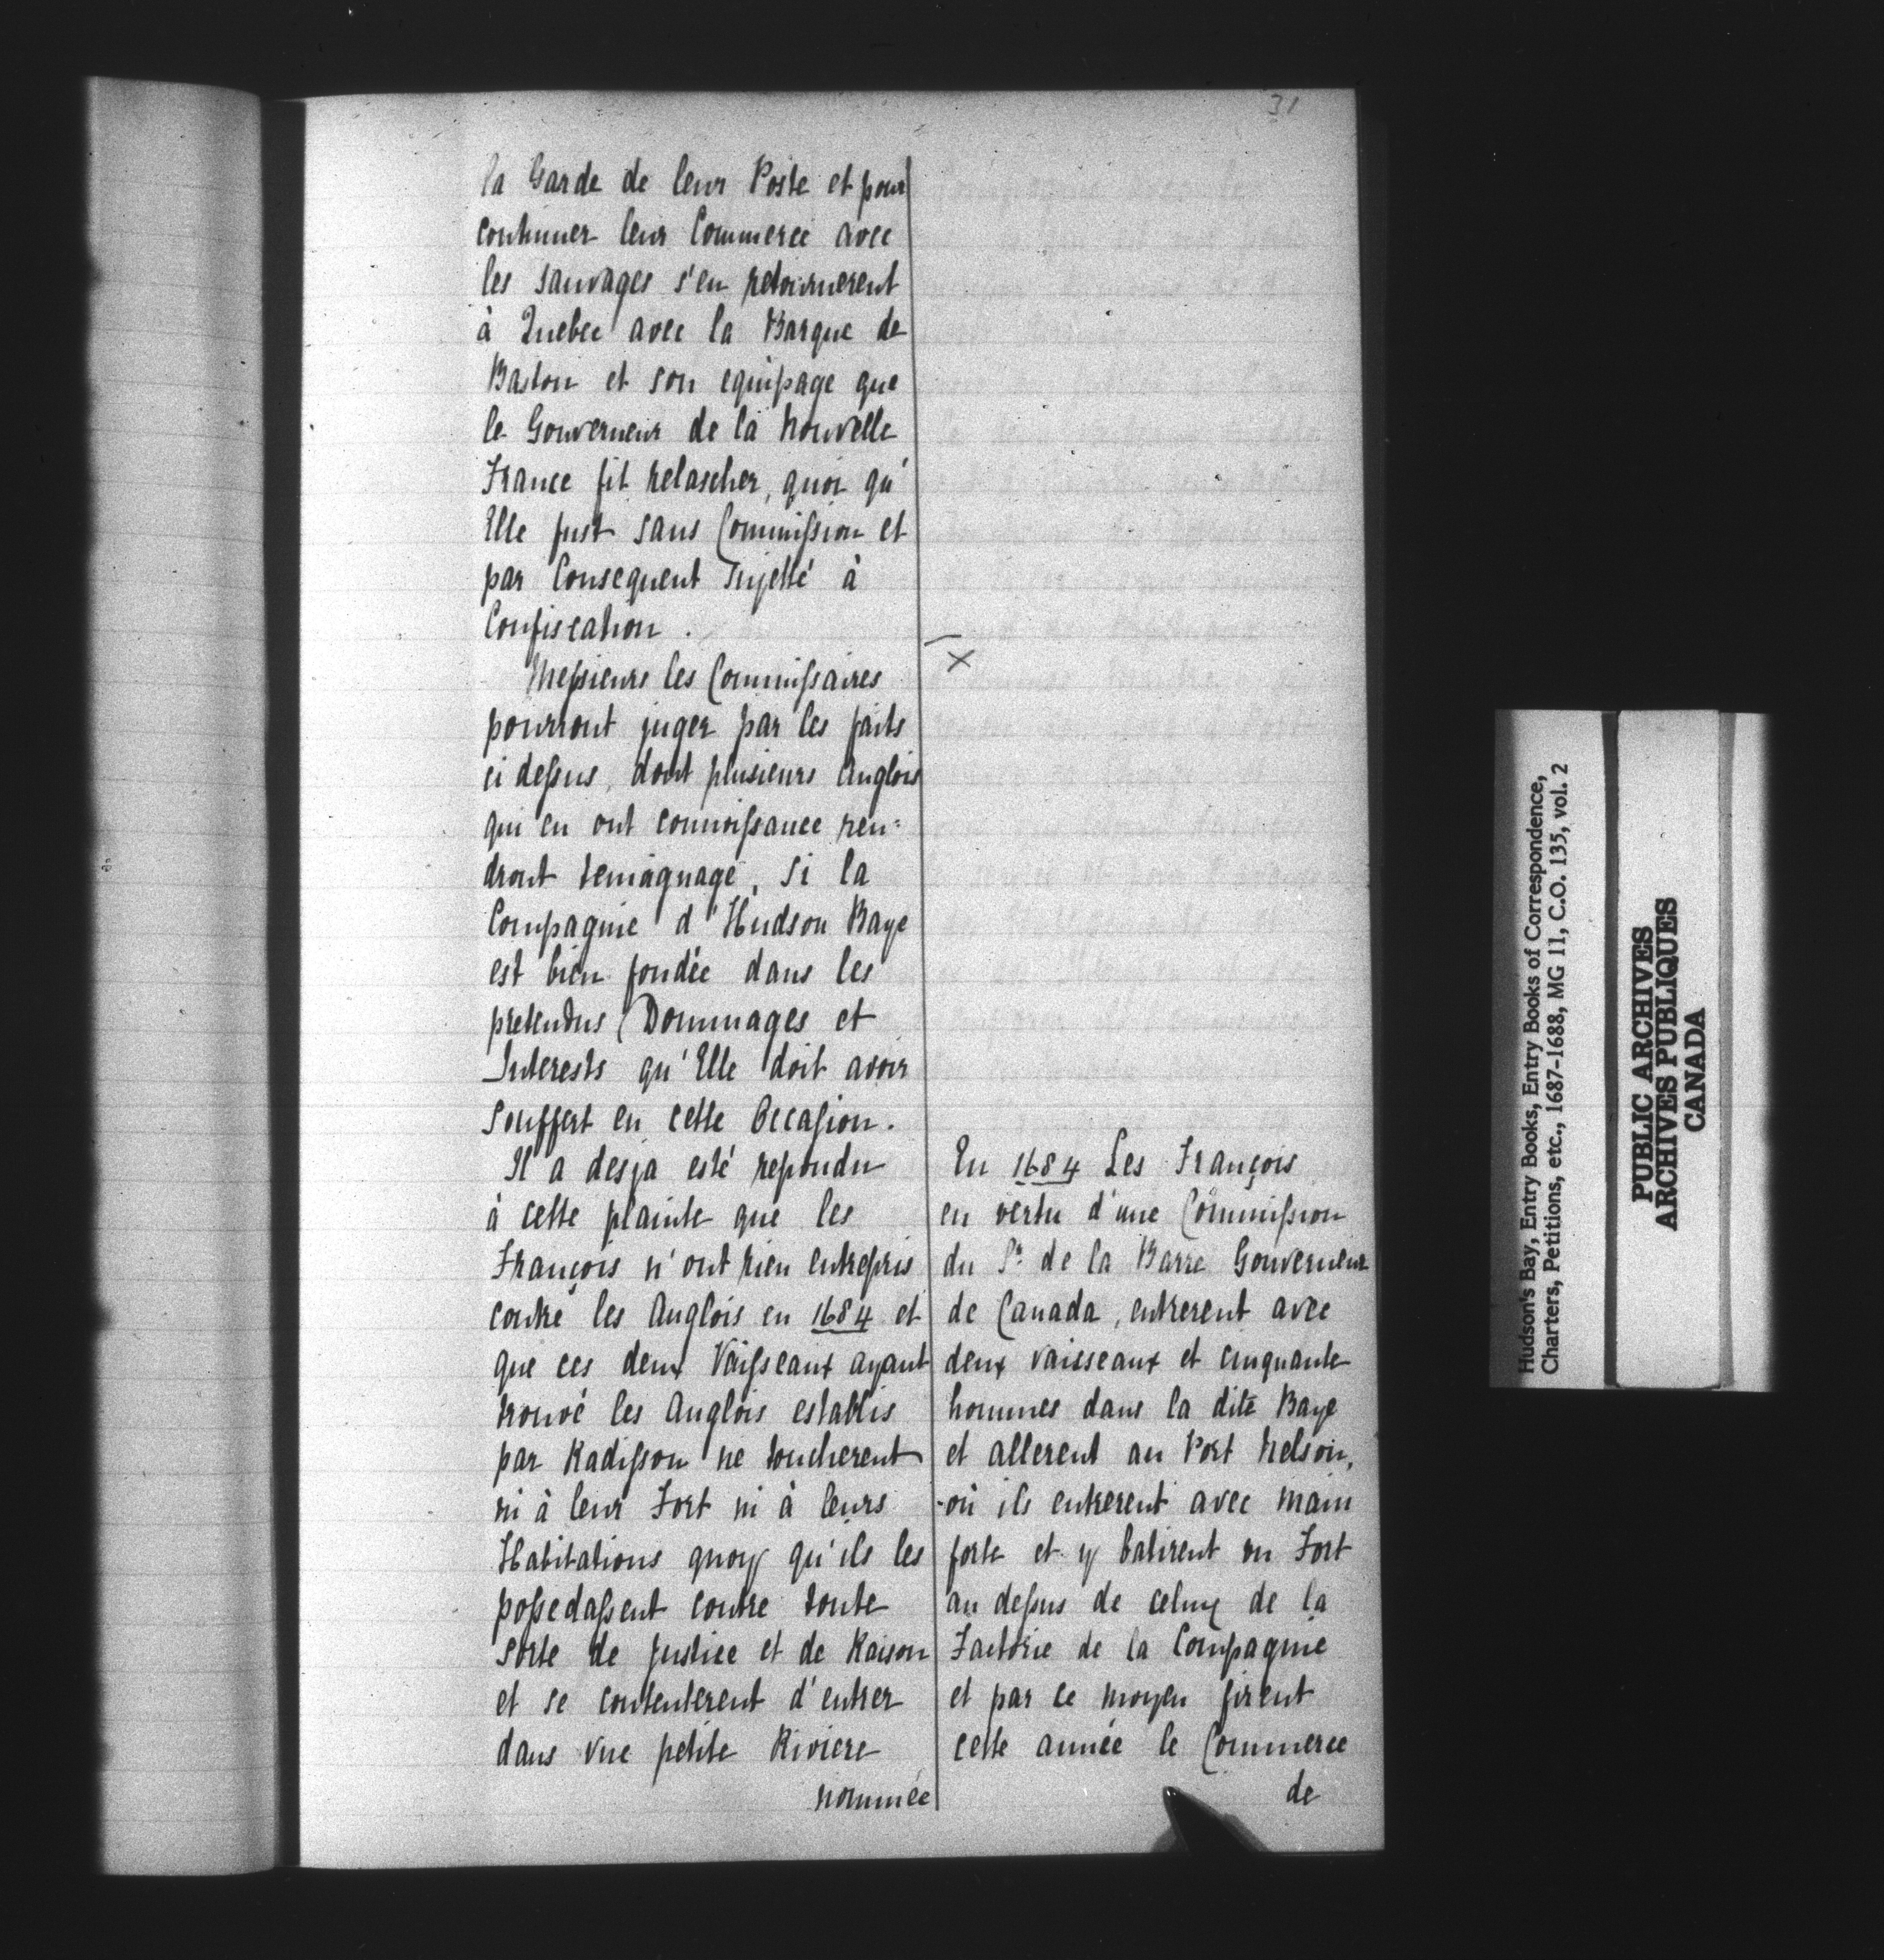 31
la Garde de leur Poste et pour
continuer leur Commerce avec
les sauvages s'en retournerent
à Quebec avec la Barque de
Baston et son equipage que
le Gouverneur de la Nouvelle
France fit relascher, quoi qu'
Elle fust sans Commission et
par Consequent Sujette à
Confiscation.
Messieurs les Commissaires
pourront juger par les faits
ci dessus, dont plusieurs Anglois
qui en ont connoissance ren=
dront temoignage, si la
Compagnie d'Hudson Baye
est bien fondée dans les
pretendus Dommages et
Interests qu'Elle doit avoir
Souffert en cette Occasion.
Il a desja esté repondu
à cette plainte que les
François n'ont rien entrepris
contre les Anglois en 1684 et
que ces deux Vaisseaux ayant
trouvé les Anglois establis
par Radisson ne toucherent
ni à leur Fort ni à leurs
Habitations quoy qu'ils les
possedassent contre toute
sorte de justice et de Raison
et se contenterent d'entrer
dans vne petite Riviere
nommée
X
En 1684 Les François
en vertu d'une Commission
du Sr. de la Barre Gouverneur
de Canada, entrerent avec
deux vaisseaux et cinquante
hommes dans la dite Baye
et allerent au Port Nelson,
où ils entrerent avec main
forte et y batirent un Fort
au dessus de celuy de la
Factorie de la Compagnie
et par ce moyen firent
cette année le Commerce
de
Hudson's Bay, Entry Books, Entry Books of Correspondence,
Charters, Petitions, etc., 1687-1688, MG 11, C.O. 135, vol. 2
PUBLIC ARCHIVES
ARCHIVES PUBLIQUES
CANADA